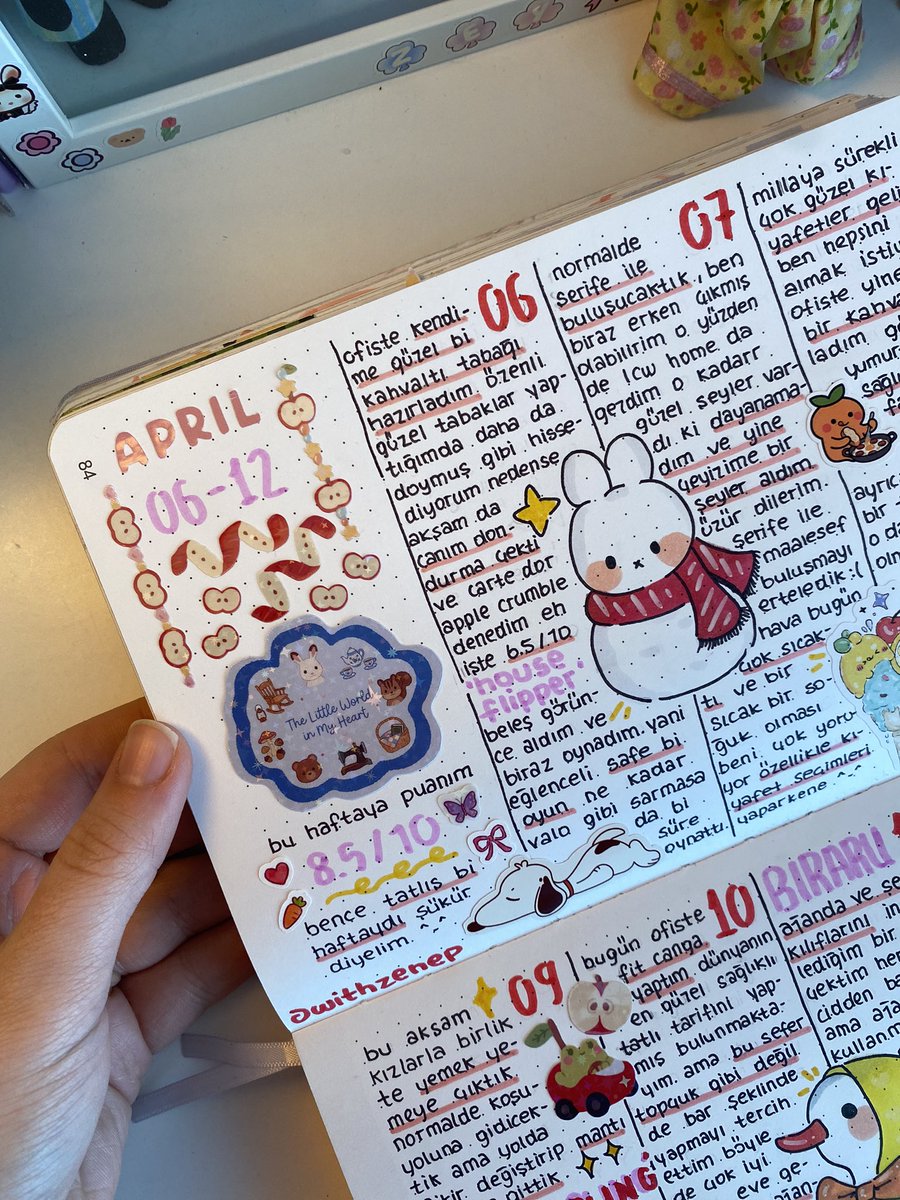 Z E Y
84
APRIL
06-12
The Little World
in My Heart
bu haftaya puanım
8.5/10
bence tatlış bi
haftaydı şükür
diyelim. ^-^
@withzenep
06
ofiste kendi-
me güzel bi
kahvaltı tabağı
hazırladım. özenli
güzel tabaklar yap-
tığımda daha da
doymuş gibi hisse-
diyorum nedense
akşam da
canım don-
durma çekti
ve carte dor
apple crumble
denedim eh
işte 6.5/10
house
flipper
beleş görün-
ce aldım ve
biraz oynadım. yani
eğlenceli safe bi
oyun ne kadar
valo gibi sarmasa
da bi
süre
oynattı.
07
normalde
şerife ile
buluşucaktık, ben
biraz erken çıkmış
olabilirim o yüzden
de lcw home da
gezdim o kadarr
güzel şeyler var-
dı ki dayanama-
dım ve yine
çeyizime bir
şeyler aldım.
özür dilerim.
şerife ile
maalesef
buluşmayı
erteledik :(
hava bugün
çok sıcak-
tı ve bir
sıcak bir so-
ğuk olması
beni çok yoru-
yor özellikle kı-
yafet seçimleri
yaparken ^-^
millaya sürekli
çok güzel kı-
yafetler
ben hepsini
almak
ofiste yine
bir
ladım
09
bu akşam
kızlarla birlik-
te yemek ye-
meye çıktık.
normalde koşu-
yoluna gidicek-
tik ama yolda
değiştirip mantı
gittik
10
bugün ofiste
fit çanga
yaptım. dünyanın
en güzel sağlıklı
tatlı tarifini yap-
mış bulunmakta-
yım. ama bu sefer
topçuk gibi değil
de bar şeklinde
yapmayı tercih
ettim böyle
de çok iyi
BIRARU
ajanda ve
kılıflarını
lediğim bir
çektim
cidden
ama